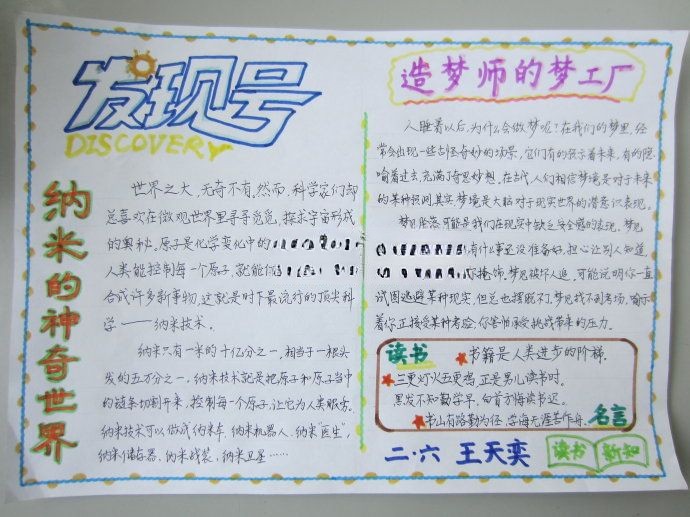 发现号
DISCOVERY
纳米的神奇世界
世界之大,无奇不有。然而,科学家们却
总喜欢在微观世界里寻寻觅觅,探求宇宙形成
的奥秘。原子是化学变化中的
人类能控制每一个原子,就能
合成许多新事物,这就是时下最流行的顶尖科
学——纳米技术。
纳米只有一米的十亿分之一,相当于一根头
发的五万分之一。纳米技术就是把原子和原子当中
的链条切割开来,控制每一个原子,让它为人类服务。
纳米技术可以做成纳米车、纳米机器人、纳米"医生",
纳米储存器、纳米战装、纳米卫星……
造梦师的梦工厂
人睡着以后,为什么会做梦呢?在我们的梦里,经
常会出现一些古怪奇妙的场景,它们有的预示着未来,有的隐
喻着过去,充满了奇思妙想。在古代,人们相信梦境是对于未来
的某种预测,其实,梦境是大脑对于现实世界的潜意识表现。
梦见坠落,可能是我们在现实中缺乏安全感的表现。梦见
有什事还没准备好,担心让别人知道,
你掩饰。梦见被坏人追,可能说明你一直
试图逃避某种现实,但总也摆脱不了。梦见找不到考场,暗示
着你正接受某种考验,你害怕承受挑战带来的压力。
读书
★书籍是人类进步的阶梯。
★三更灯火五更鸡,正是男儿读书时。
黑发不知勤学早,白首方悔读书迟。
★书山有路勤为径,学海无涯苦作舟。
名言
二·六 王天奕
读书 新知